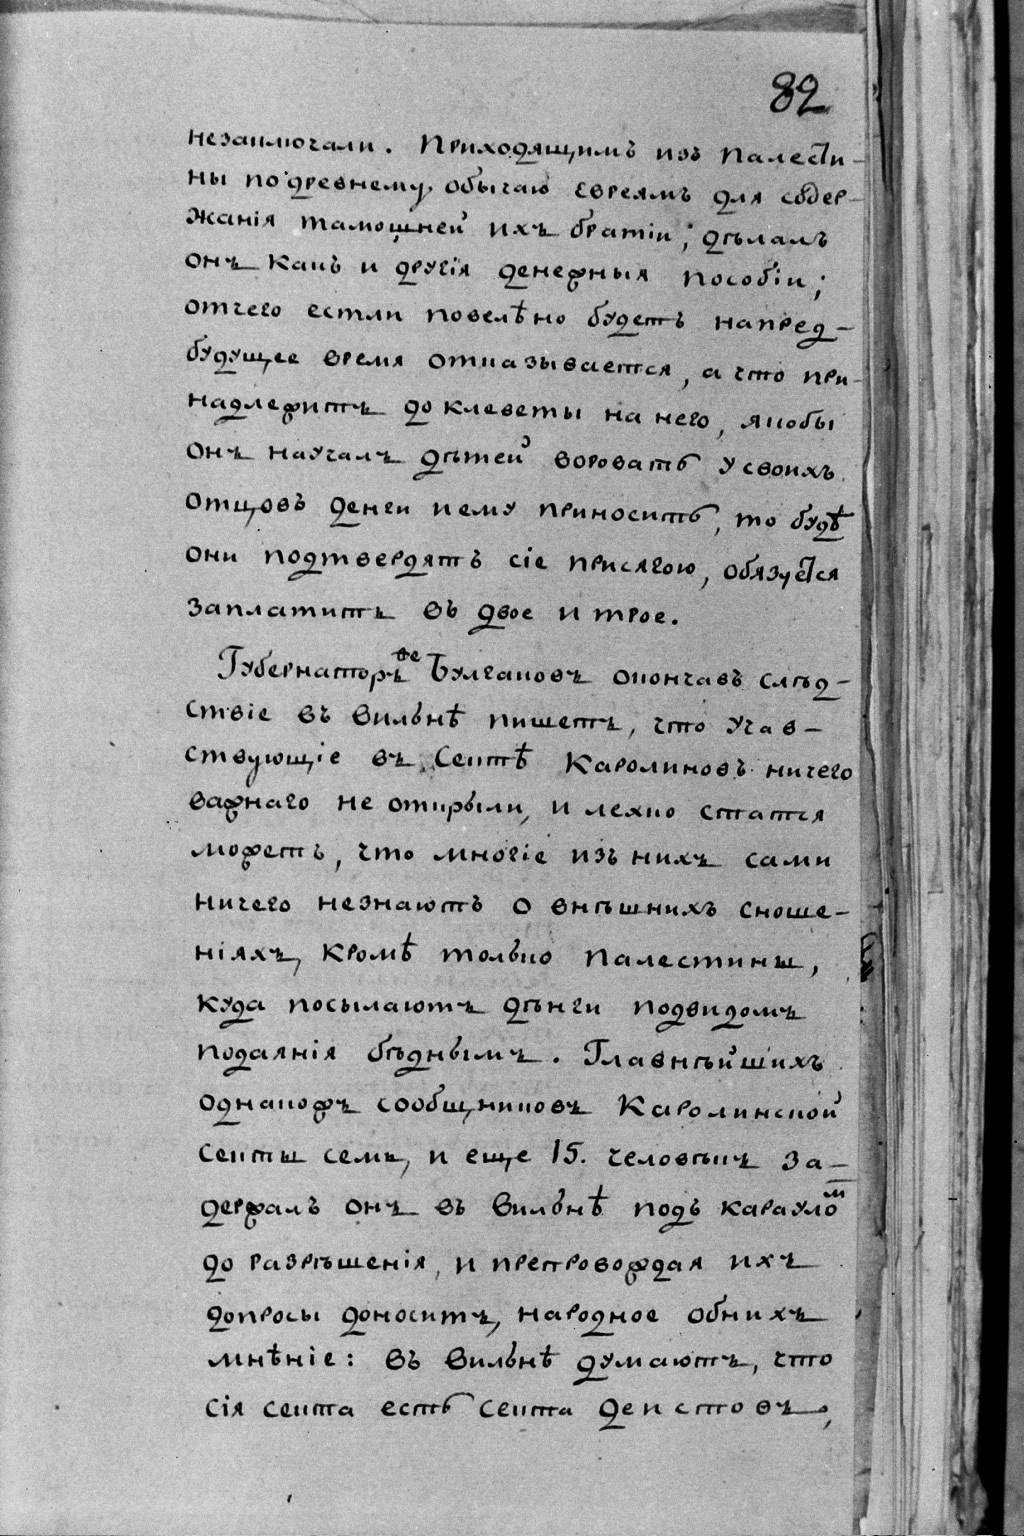 82
незаключали. Приходящимъ изъ Палести-
ны по древнему обычаю Евреямъ для содер-
жанія тамошней ихъ братіи, дѣлалъ
онъ какъ и другія денежныя пособіи;
отчего естли повелѣно будетъ напред-
будущее время отказывается, а что при-
надлежитъ до клеветы на него, якобы
онъ научалъ дѣтей воровать у своихъ
отцовъ денги кему приносить, то будѣ
они подтвердятъ сіе присягою, обязуется
заплатить въ двое и трое.
Губернаторъ же Булгаковъ окончавъ слѣд-
ствіе въ Вильнѣ пишетъ, что учав-
ствующіе въ Сектѣ Каролиновъ ничего
важнаго не открыли, и лехко статся
можетъ, что многіе изъ нихъ сами
ничего незнаютъ о внѣшнихъ сноше-
ніяхъ, кромѣ только Палестины,
куда посылаютъ дѣнги подвидомъ
подаянія бѣднымъ. Главнѣйшихъ
однакожъ сообщниковъ Каролинской
секты семь, и еще 15. человѣкъ за-
держалъ онъ въ Вильнѣ подъ карауломъ
до разрѣшенія, и препровождая ихъ
допросы доноситъ, народное обнихъ
мнѣніе: въ Вильнѣ думаютъ, что
сія секта есть секта деистовъ,